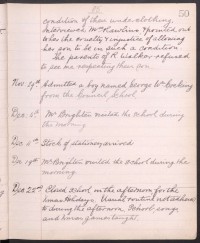 50
condition of their underclothing.
Interviewed Mrs Rawlins & pointed out
to her the cruelty & injustice of allowing
her son to be in such a condition
The parents of R Walker refused
to see me respecting their son
Nov 19th Admitted a boy named George
from the Council School
Dec 5th Mr Brighton visited the school during
the morning
Dec 8th Stock of stationery arrived
Dec 19th Mr Brighton visited the school during the
morning.
Dec 22nd Closed school in the afternoon for the
Xmas Holidays. Usual routine not adhered
to during the afternoon. School songs
and games taught.